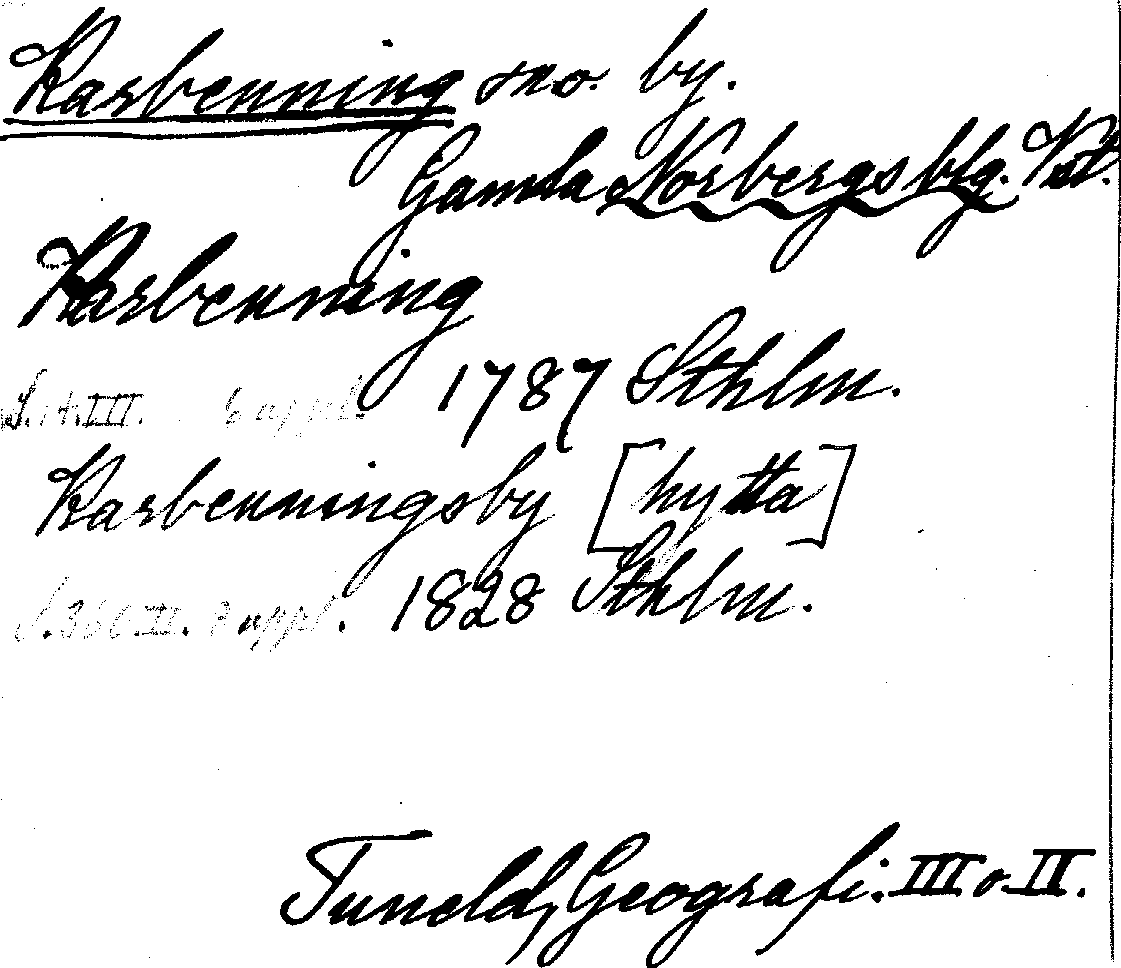 Karbenning sn o. by.
Gamla Norbergs blg. Vstm.
Karbenning
S. 14. III. 6 uppl. 1787 Sthlm.
Karbenningsby [hytta]
S. 360. II. 8 uppl. 1828 Sthlm.
Tuneld, Geografi. III o. II.